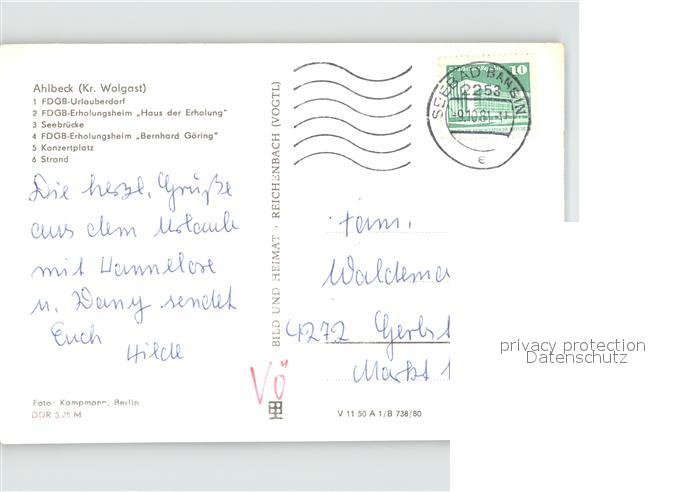 Ahlbeck (Kr. Wolgast)
1 FDGB-Urlauberdorf
2 FDGB-Erholungsheim „Haus der Erholung"
3 Seebrücke
4 FDGB-Erholungsheim „Bernhard Göring"
5 Konzertplatz
6 Strand
Die herzl. Grüße
aus dem Urlaub
mit Hannelore
u. Dany sendet
Euch
Hilde
Foto: Kampmann, Berlin
DDR 3.25 M
BILD UND HEIMAT · REICHENBACH (VOGTL)
Vö
V 11 50 A 1/B 738/80
10
SEEBAD BANSIN
2253
-9.10.81
e
Fam.
Waldema
4272 Gerbst
Markt 1
privacy protection
Datenschutz